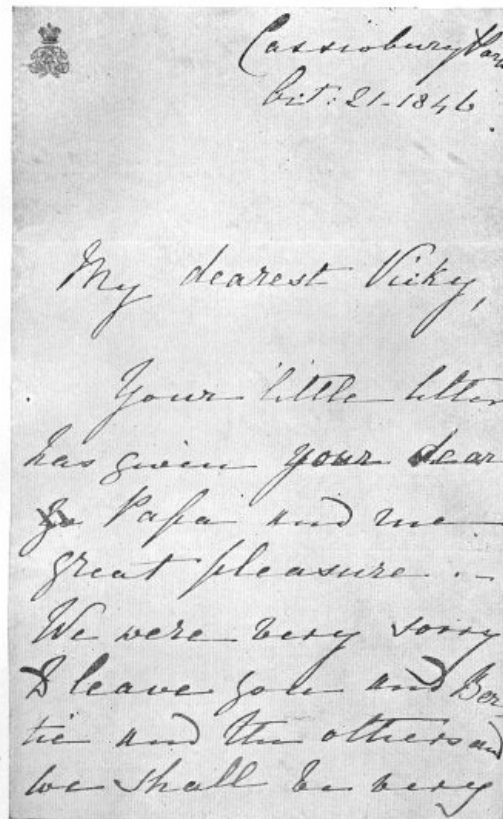 Cassiobury Park
Oct: 21-1846
My dearest Vicky,
Your little letter
has given your dear
Papa and me
great pleasure. –
We were very sorry
to leave you and Ber
tie and the others and
we shall be very